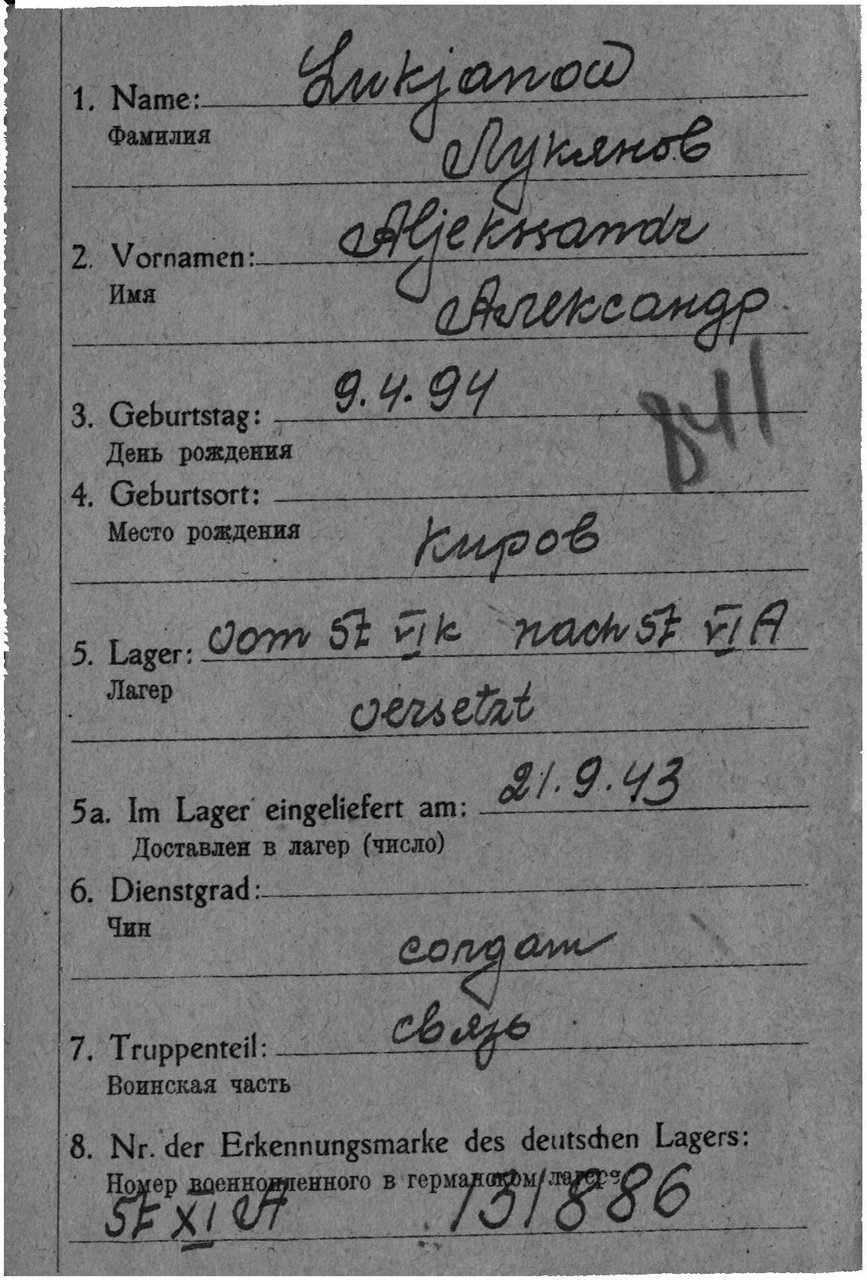 1. Name: Lukjanow
Фамилия
Лукянов
2. Vornamen: Aljekssandr
Имя
Александр
3. Geburtstag: 9.4.94
841
День рождения
4. Geburtsort:
Место рождения
Киров
5. Lager: vom St VI k nach St VI A
Лагер
versetzt
5a. Im Lager eingeliefert am: 21.9.43
Доставлен в лагер (число)
6. Dienstgrad:
Чин
солдат
7. Truppenteil: связь
Воинская часть
8. Nr. der Erkennungsmarke des deutschen Lagers:
Номер военнопленного в германском лагере
St XI A 131886